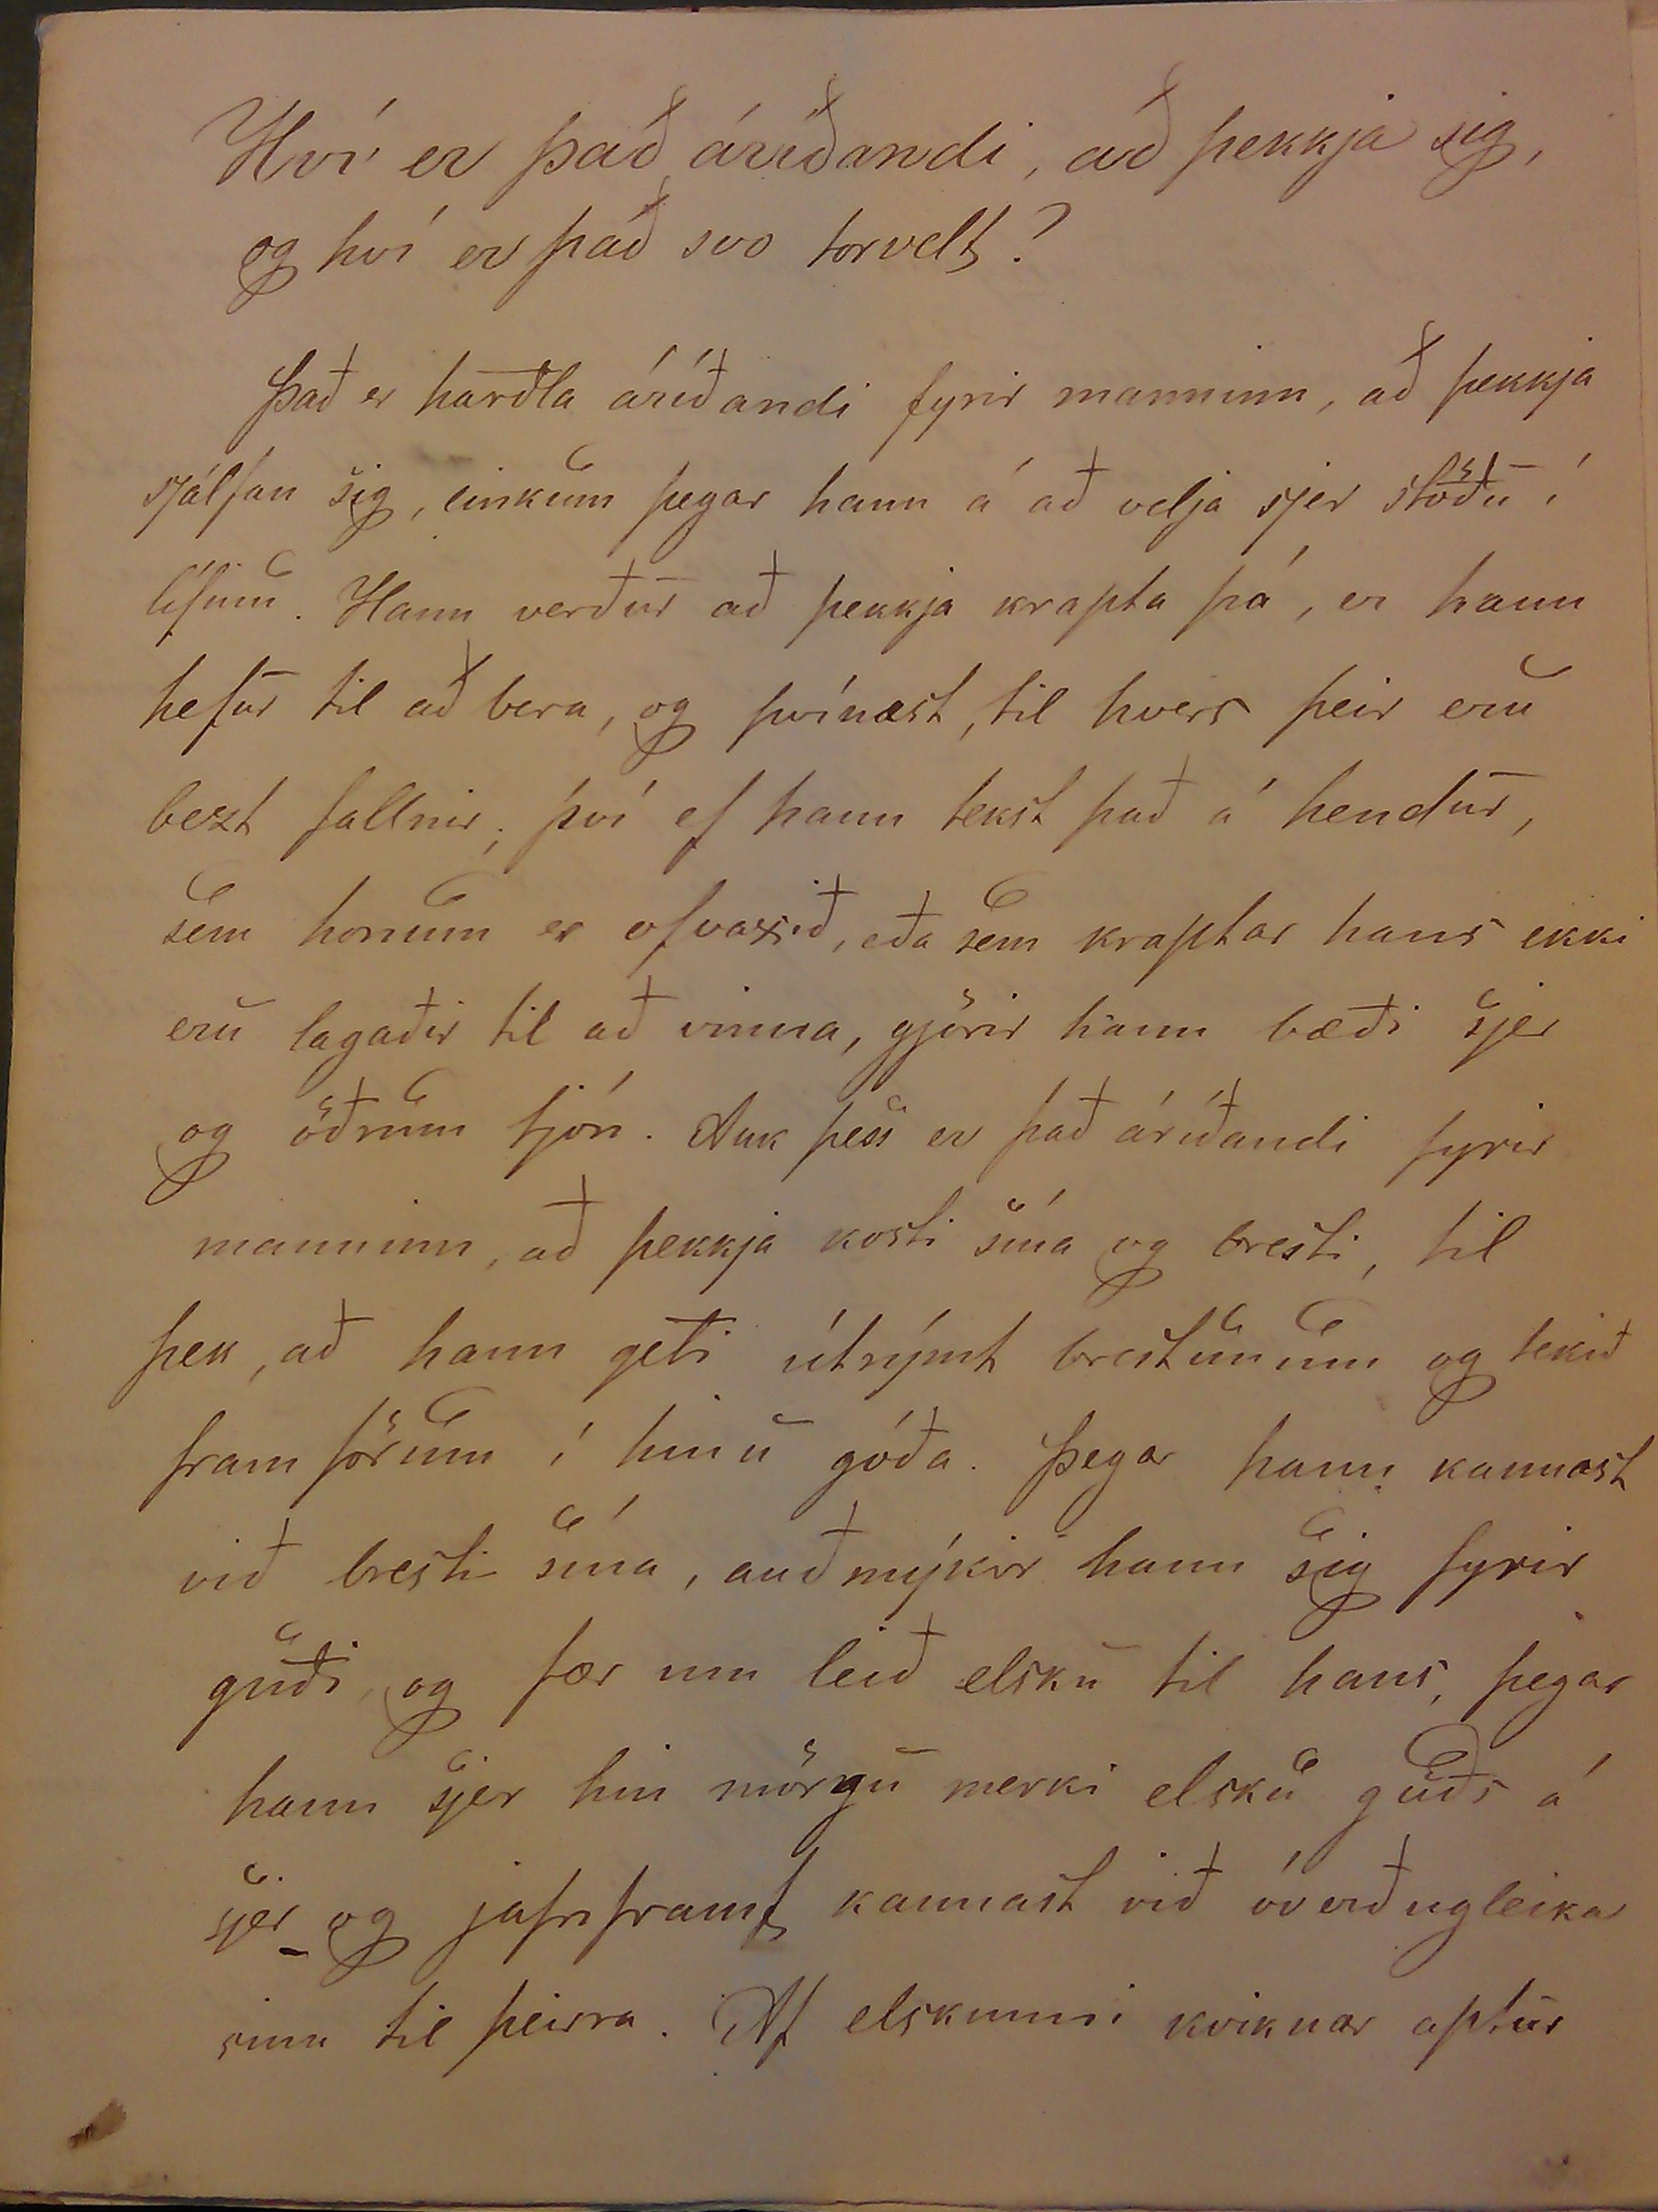 Hví er það áríðandi, að þekkja sig,
og hví er það svo torvelt?
Það er harðla áríðandi fyrir manninn, að þekkja
sjálfan sig, einkum þegar hann á að velja sjer stöðu í
lífinu. Hann verður að þekkja krapta þá, er hann
hefur til að bera, og þvínæst, til hvers þeir eru
bezt fallnir; því ef hann tekst það á hendur,
sem honum er ofvaxið, eða sem kraptar hans ekki
eru lagaðir til að vinna, gjörir hann bæði sjer
og öðrum tjón. Auk þess er það áríðandi fyrir
manninn, að þekkja kosti sína og bresti, til
þess, að hann geti útrýmt brestunum og tekið
framförum í hinu góða. Þegar hann kannast
við bresti sína, auðmýkir hann sig fyrir
guði, og fær um leið elsku til hans, þegar
hann sjer hin mörgu merki elsku guðs á
sjer og jafnframt kannast við óverðugleika
sinn til þeirra. Af elskunni kviknar aptur